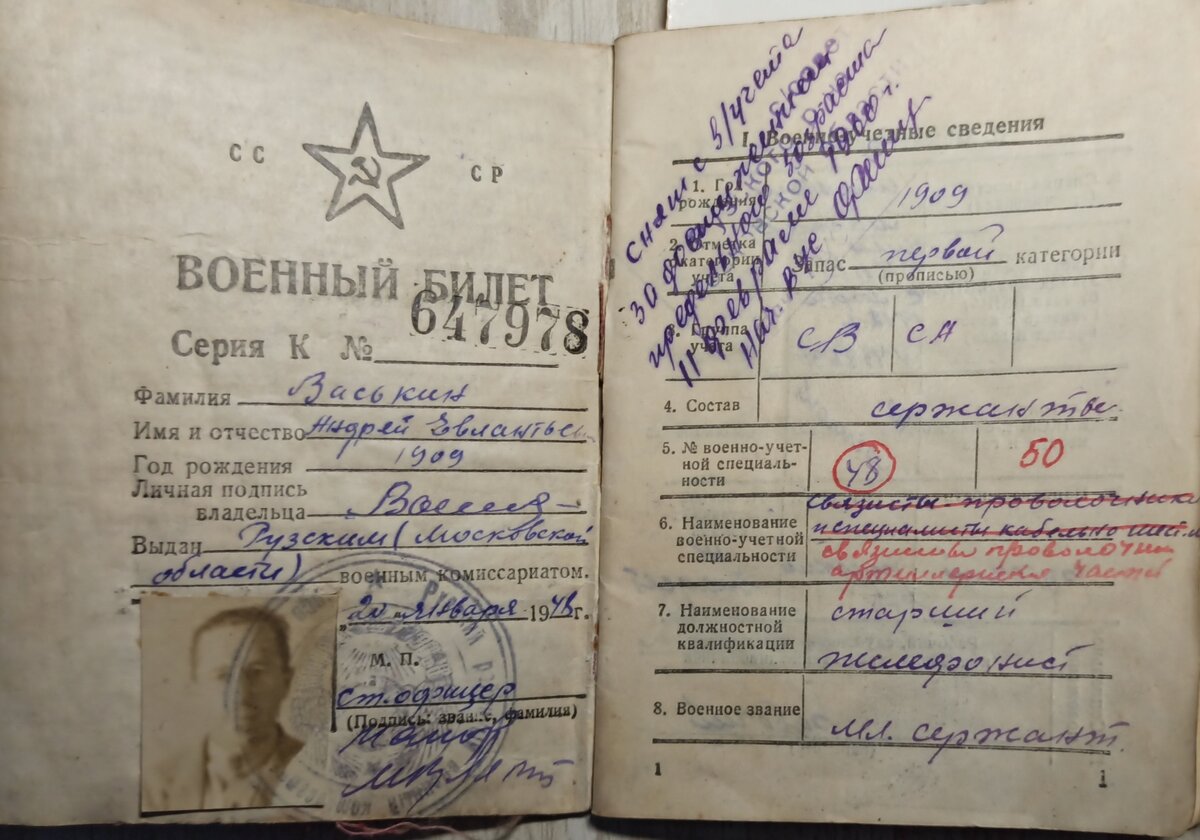 СС СР
ВОЕННЫЙ БИЛЕТ
Серия К № 647978
Фамилия Васькин
Имя и отчество Андрей Евлантьев
Год рождения 1909
Личная подпись
владельца
Выдан Рузским (Московской
области) военным комиссариатом.
"20" января 1948 г.
М. П.
ст. офицер
(Подпись: звание, фамилия)
майор
снят с в/учета
за достижением
предельного возраста
11 февраля 1960 г.
Нач. вус
I. Военно-учетные сведения
1. Год
рождения 1909
2. Отметка
о категории
учета
запас первой категории
(прописью)
3. Группа
учета
СВ СА
4. Состав сержанты
5. № военно-учет-
ной специаль-
ности
48 50
6. Наименование
военно-учетной
специальности
связисты проволочники
и специалисты кабельно шест.
связисты проволочни
артиллерийск частей
7. Наименование
должностной
квалификации
старший
телефонист
8. Военное звание
мл. сержант.
1 1